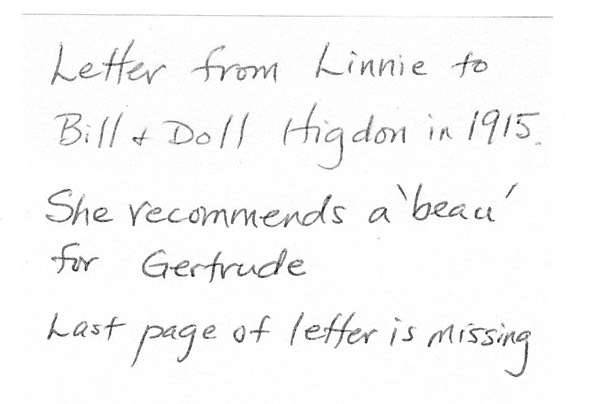 Letter from Linnie to
Bill & Doll Higdon in 1915.
She recommends a 'beau'
for Gertrude
Last page of letter is missing